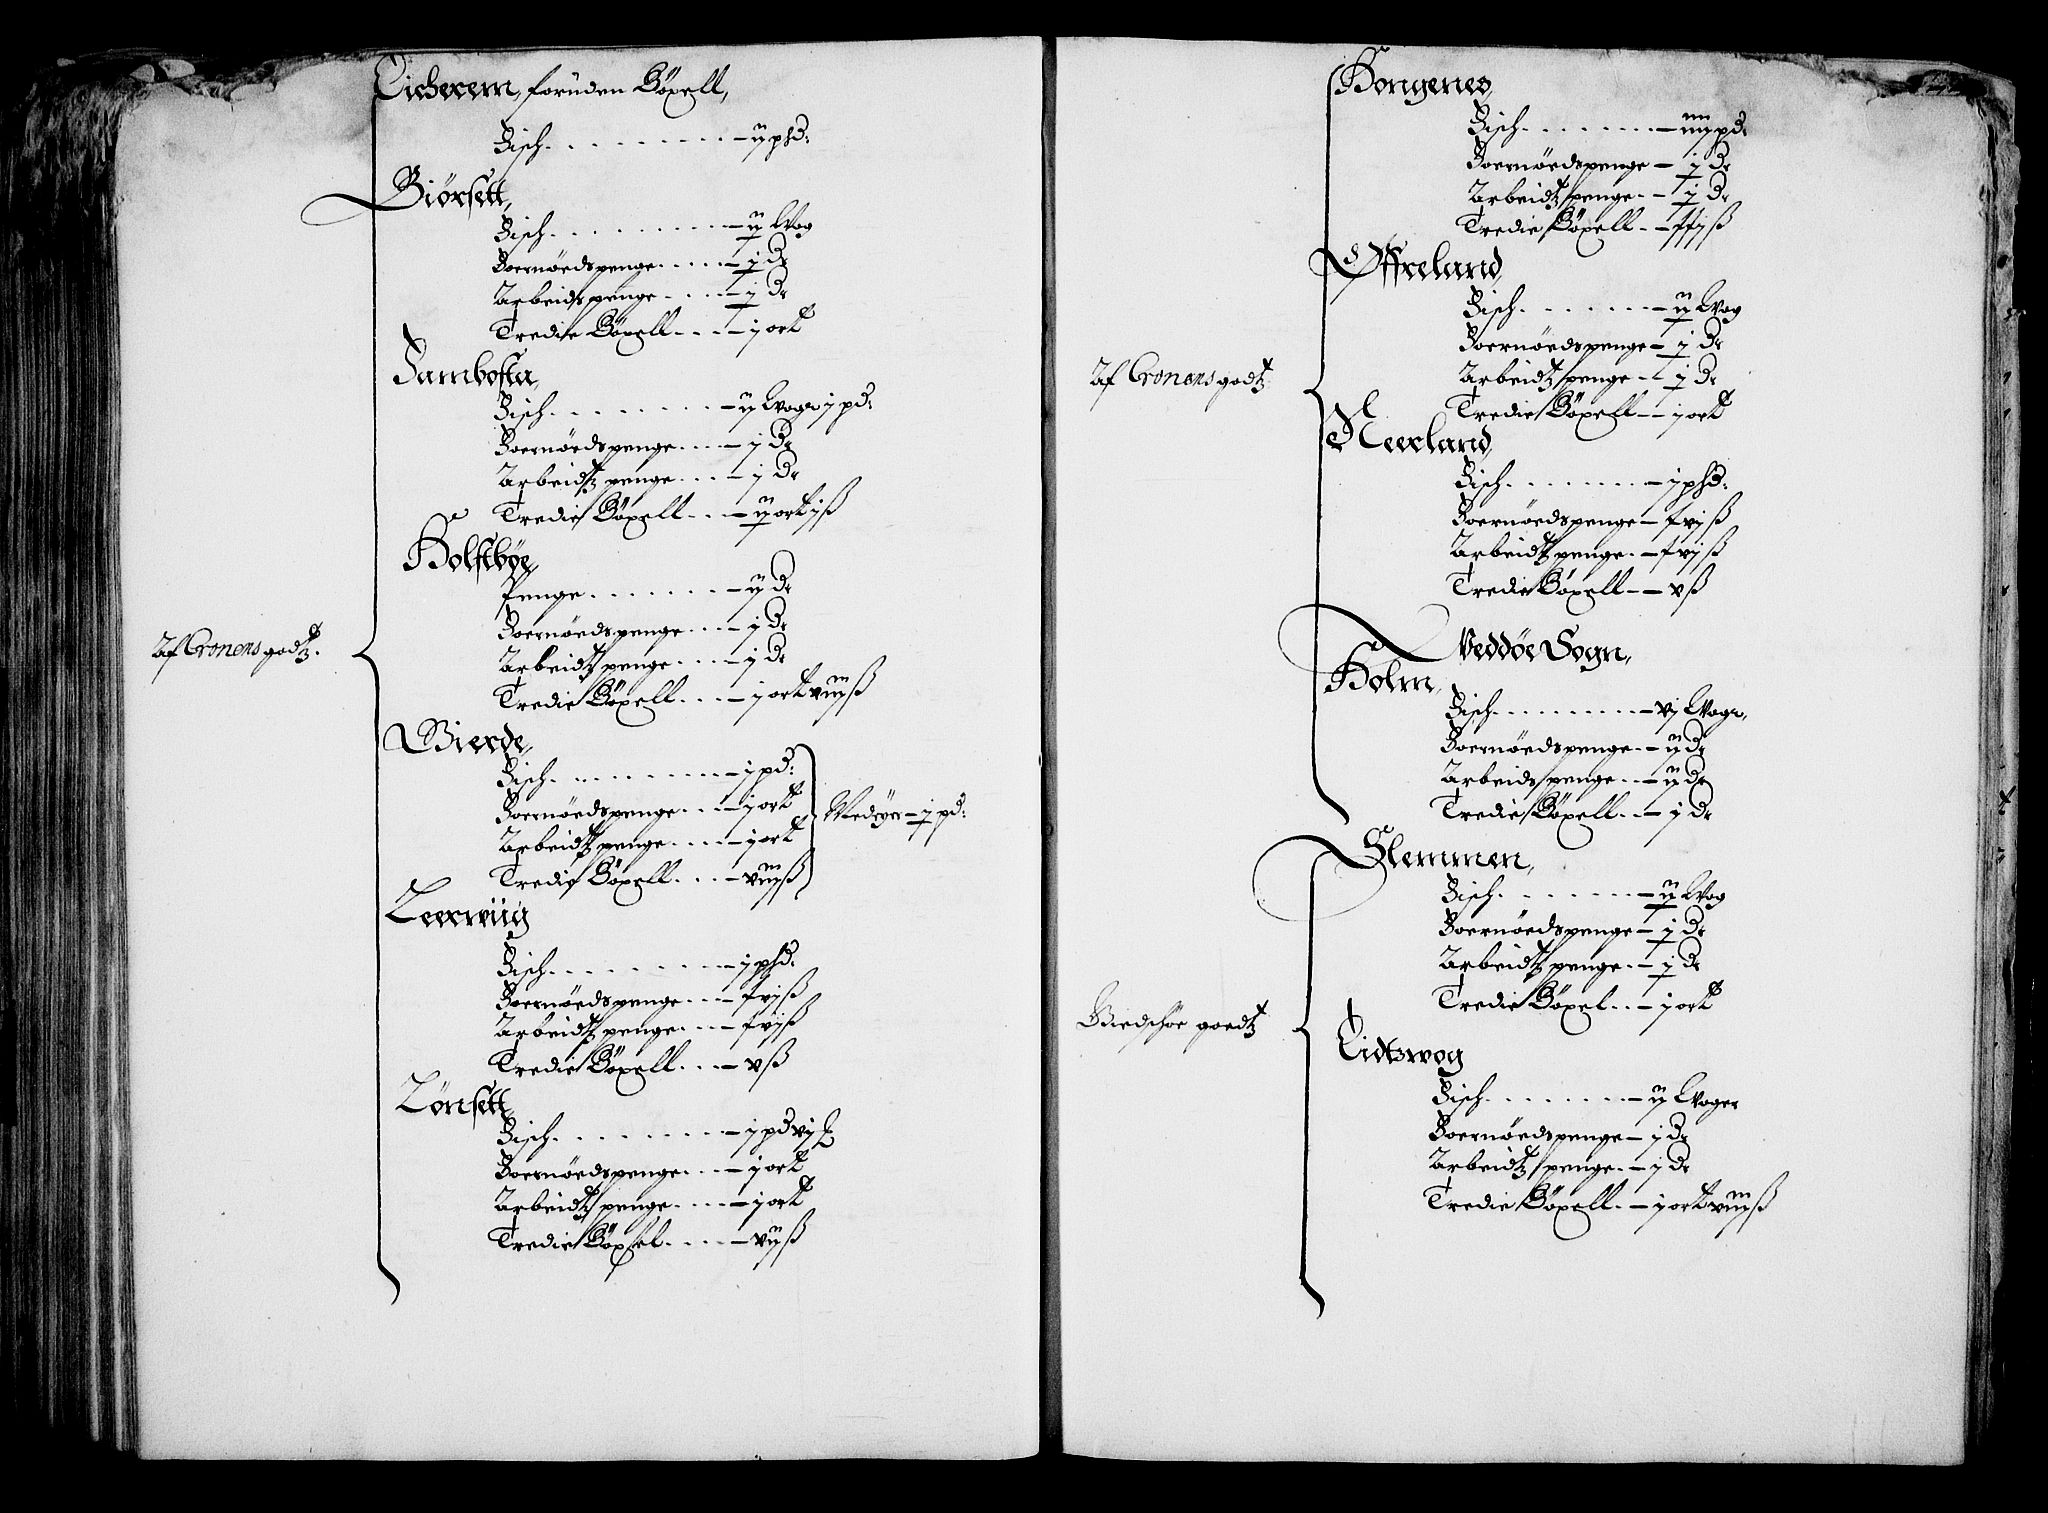 Eicherem, foruden Böxell,
Fisch. . . . . . . . . — ij phd:
Biörsett,
Fisch. . . . . . . . . — ij Wog
Foernöedspenge. . . . . — j dr
Arbeidspenge. . . . . — j dr
Tredie Böxell. . . . — j ort
Farmbosta,
Fisch. . . . . . . . . — ij Woge j pd:
Foernöedspenge. . . . — j dr
Arbeidtz penge. . . . — j dr
Tredie Böxell. . . . — ij ort j ß
Holstböe,
Penge. . . . . . . . — ij dr
Foernöedspenge. . . . — j dr
Arbeidtz penge. . . . — j dr
Tredie Böxell. . . . — j ort viij ß
Af Cronens godtz.
Bierde,
Fisch. . . . . . . . . — j pd:
Foernöedspenge. . . . — j ort
Wedeyer — j pd:
Arbeidtz penge. . . . . — j ort
Tredie Böxell. . . . — viij ß
Leerwiig
Fisch. . . . . . . . . — j phd:
Foernöedspenge. . . . — xvj ß
Arbeidtz penge. . . . — xvj ß
Tredie Böxell. . . . — v ß
Lönsett,
Fisch. . . . . . . . . — j pd vj
Foernöedspenge. . . . — j ort
Arbeidtz penge. . . . . — j ort
Tredie Böxel. . . . . — vij ß
Hongenes,
Fisch. . . . . . . — iiij pd:
Foernöedspenge — j dr
Arbeidtz penge. — j dr
Tredie Böxell. . — xxj ß
Offreland,
Fisch. . . . . . . — ij Wog
Foernöedspenge — j dr
Arbeidtz penge — j dr
Tredie Böxell — j ort
Af Cronens godtz
Neerland,
Fisch. . . . . . . . — j phd:
Foernöedspenge — xvj ß
Arbeidtz penge. — xvj ß
Tredie Böxell — — v ß
Veddöe Sogn,
Holm,
Fisch. . . . . . . . . — vj Woge,
Foernöedspenge. . — ij dr
Arbeidspenge. . . — ij dr
Tredie Böxell. . . — j dr
Slemmen,
Fisch. . . . . . . . — ij Wog
Foernöedspenge — j dr
Arbeidtz penge. . — j dr
Tredie Böxel. . . — j ort
Giedschöe goedtz
Eidtswog
Fisch. . . . . . . . — ij Woger
Foernöedspenge — j dr
Arbeidtz penge. — j dr
Tredie Böxell. . — j ort viij ß